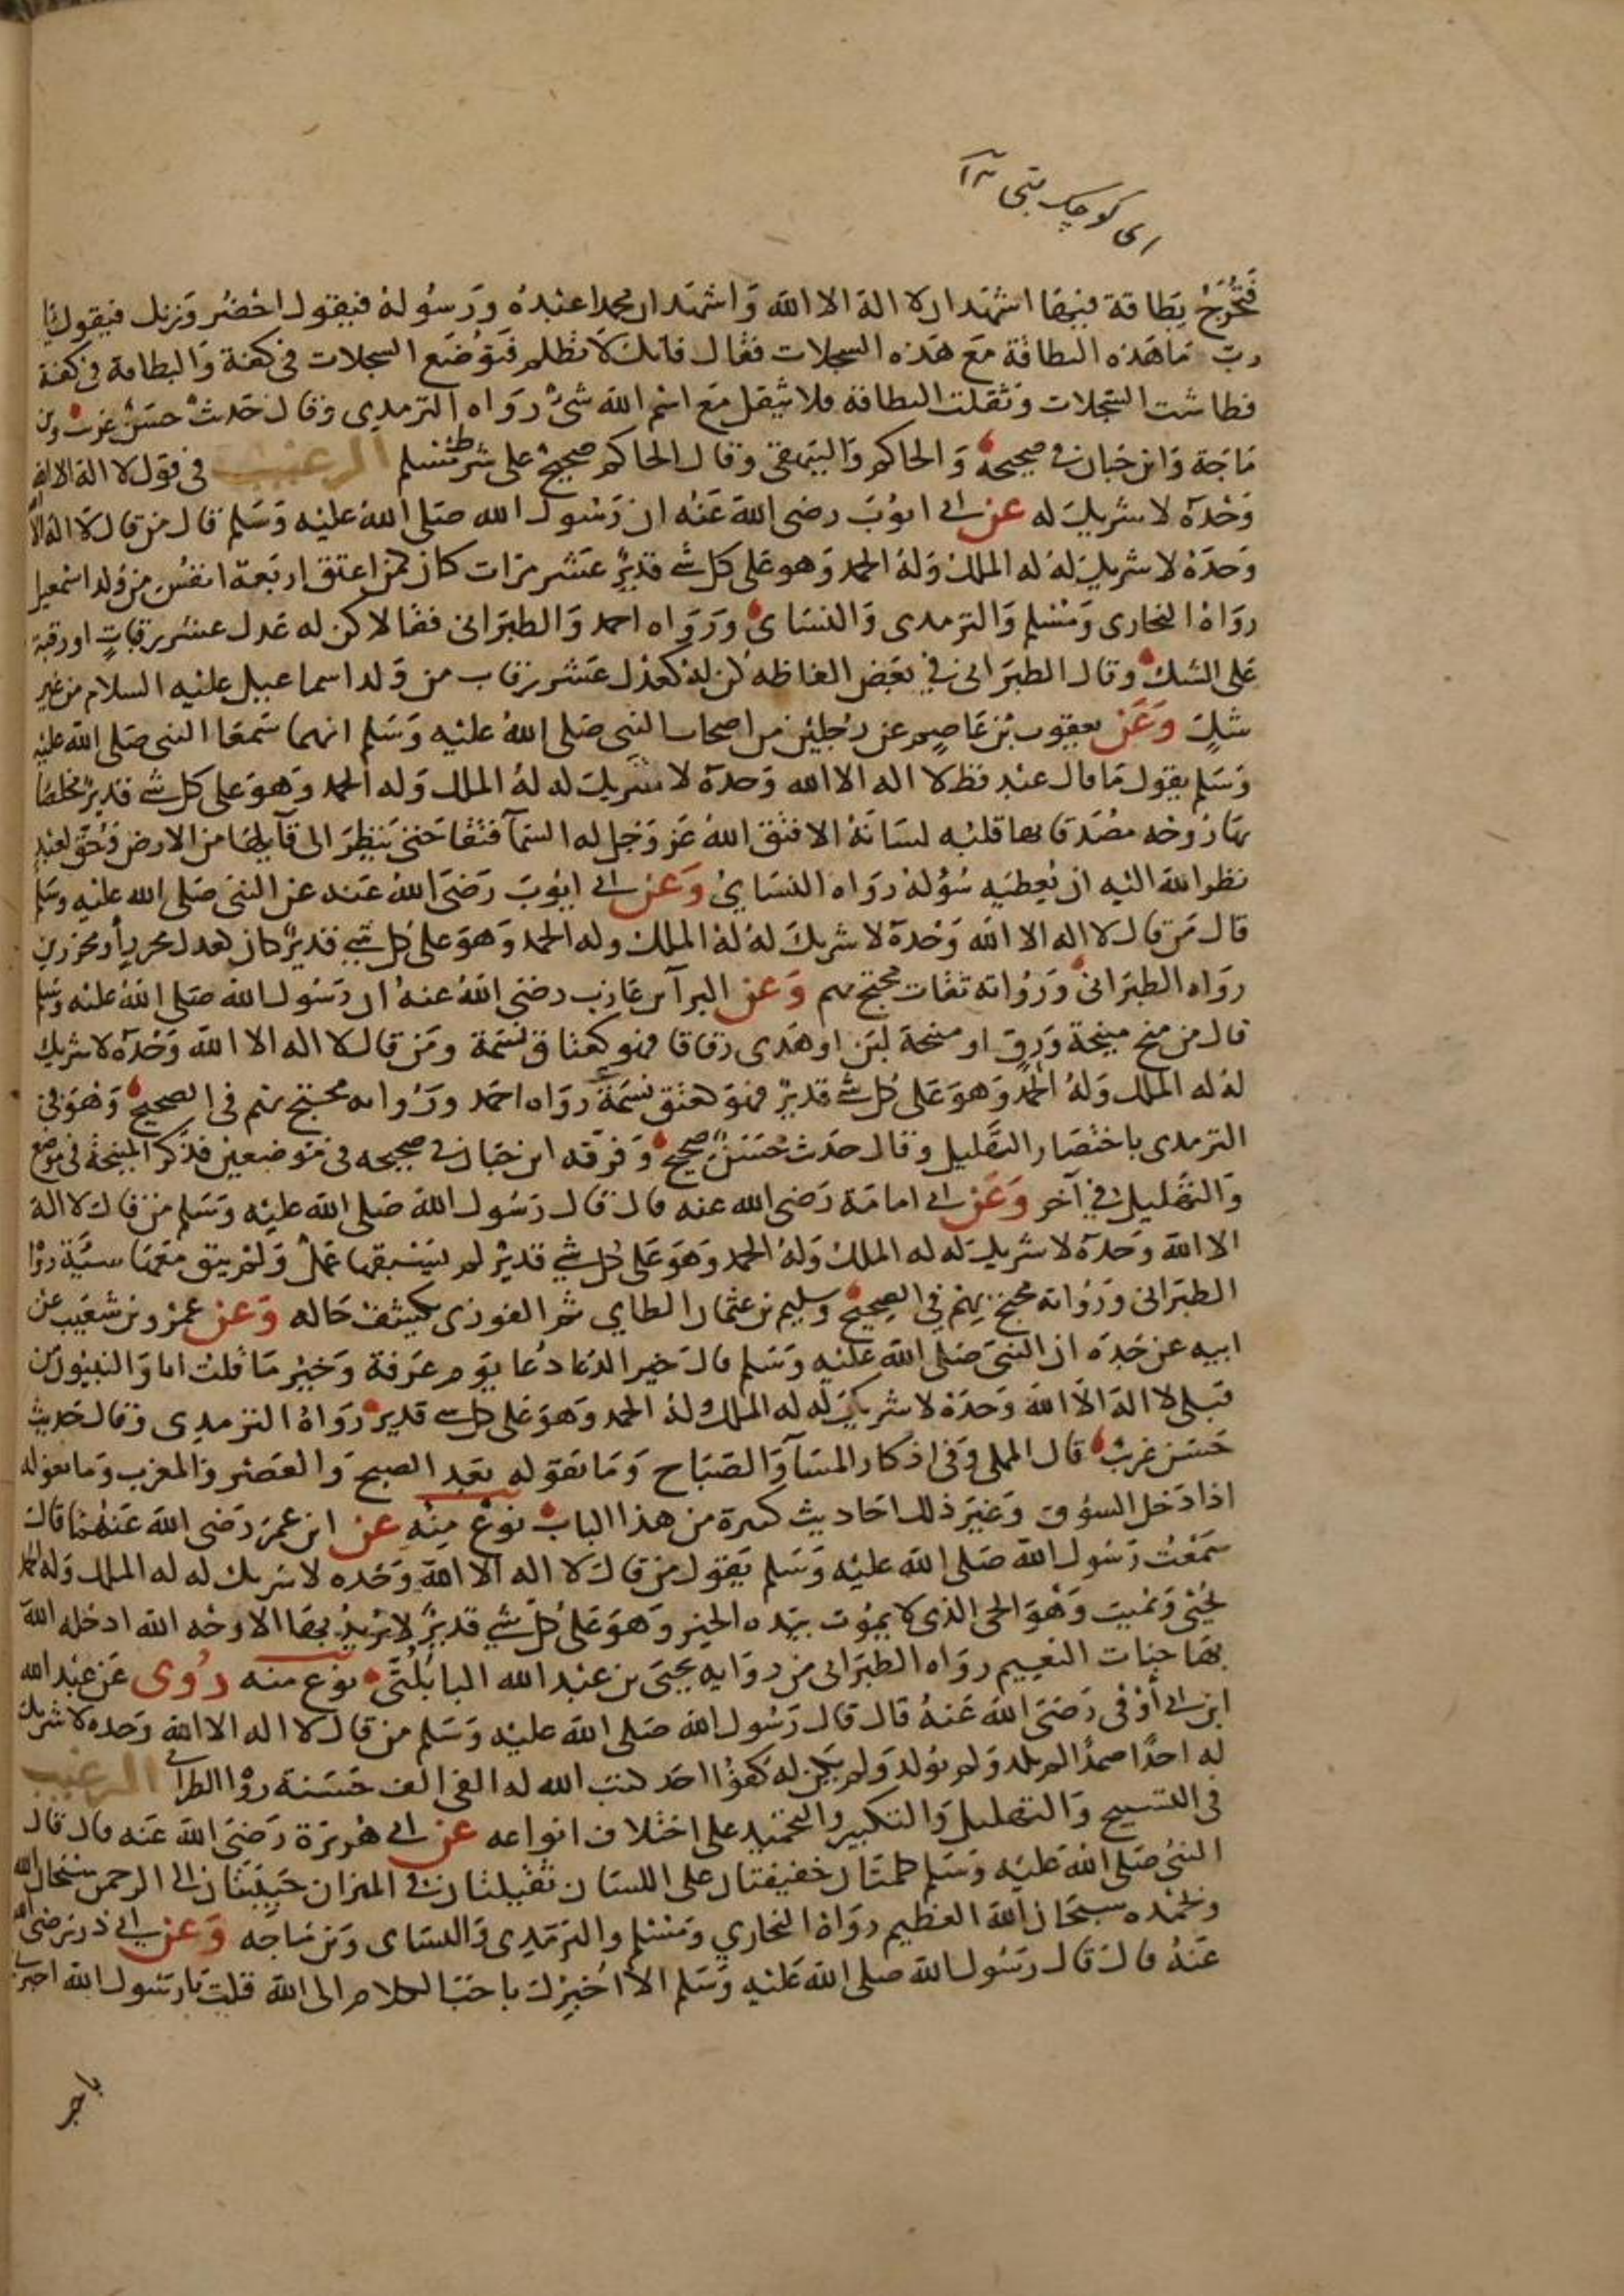 ای کوچک
فَتُخْرَجُ بِطَاقة فيها اشهد ان لا اله الا الله وَاشهَد ان محمدا عبدُه وَرَسُوله فيقول احْضُر وَزنك فيقول يَا
ربّ مَا هَذه البطاقة مَع هَذه السجلات فقال فانك لا تظلم فتوُضَع السجلات في كفة وَالبطاقة في كفة
فطاشت السّجلات وثقلت البطاقة فلا يثقل مَع اسم الله شئ رَوَاه الترمدي وقال حَديث حسَن غريب وبن
مَاجَة وَابن حبان في صحيحه وَالحاكم وَالبيهقي وقال الحاكم صحيح على شرط مسلم الترغيب في قول لا اله الا الله
وَحْدَه لا شريك له عن ابى ايوُبَ رضى الله عَنْه ان رَسُول الله صَلى اللهُ عليْه وَسَلم قال من قال لا اله الا الله
وَحدَهُ لا شريك لهُ له الملك وَلهُ الحمد وَهو عَلى كل شئ قديرٌ عَشر مرّات كان كمن اعتق اربَعة انفس من وَلد اسمعيل
روَاهُ البخارى وَمسْلم وَالترمدى وَالنسَاى وَرَوَاه احمد وَالطبَرانى فقالا كن له عَدل عشر رقابٍ او رقبة
عَلى الشك وقال الطبَرانى في بَعض الفاظه كن له كعَدل عَشر رقاب من وَلد اسماعيل عليْه السلام من غير
شكٍ وَعَنْ يعقوب بْن عَاصِم عن رجلين من اصحاب النبى صَلى اللهُ عليْه وَسَلم انهما سَمعَا النبى صَلى الله عليْه
وَسَلم يقول مَا قال عبْد قط لا اله الا الله وَحدَه لا شريك له لهُ الملك وَله الحمد وَهوَ على كل شئ قديرٌ مخلصًا
بهَا رُوحَه مصَدقا بها قلبُه لسَانَهُ الا فتق اللهُ عَز وَجل له السَمآ فتقا حَتى يَنظرَ الى قآيلهَا من الارض وَحُق لعَبدٍ
نظر الله اليْه ان يُعطيَه سُؤلهُ رَوَاه النسَايُ وَعَن ابى ايوبَ رَضىَ اللهُ عَنه عن النبى صَلى الله عليْه وسَلم
قال مَن قال لا اله الا الله وَحْدَه لا شريك لهُ لهُ الملك وله الحمد وَهوَ على كل شئ قديرٌ كان كعدل محررٍ أو محررين
روَاه الطبَرانى وَرُوَاته ثقات محتج بهم وَعن البرآ بن عَازب رضىَ اللهُ عنهُ ان رَسُول الله صَلى اللهُ عليْه وسَلم
قال من منح منيحة وَرِقٍ او منيحَة لبَن او هَدى زقاقا فهو كعتاق نسَمة ومَن قال لا اله الا الله وَحْدَه لا شريك
لهُ له الملك وَلهُ الحمدُ وَهوَ عَلى كل شئ قديرٌ فهوَ كعتق نسَمَة رَوَاه احمَد وَرُواته محتج بهم في الصحيح وَهوَ في
الترمدى باختصَار التهليل وقال حَديث حَسَنٌ صحيح وَفرقه ابن حبَان في صحيحه في موضعين فذكر المنيحَة في موضع
وَالتهليل في آخر وَعَن ابى امامَة رَضى الله عنه قال قال رَسُول الله صَلى الله عليْه وَسَلم من قال لا اله
الا الله وَحدَه لا شريك له له الملك وَلهُ الحمد وَهوَ عَلى كل شئ قديرٌ لم يَسْبقها عَمَل وَلم يبق معَهَا سيَّة روَاه
الطبرانى وَرُوَاته محتج بهم في الصحيح وَسليم بن عثمان الطاي ثم الفوزى يكشف حَاله وَعَن عمرو بن شعَيب عن
ابيه عن جَده ان النبىَ صَلى الله عَليْه وَسَلم قال خير الدعا دُعا يوَم عرَفة وَخير مَا قلت انا وَالنبيوُن من
قبلى لا اله الا الله وَحدَهُ لا شريك له له الملك وَلهُ الحمد وَهوَ عَلى كل شئ قدير روَاهُ الترمدى وَقال حَديث
حَسَن غريبٌ قال المملى وَفى اذكار المسَآ وَالصَبَاح وَمَا يَقوله بَعد الصبح وَالعَصْر وَالمغرب وَما يقوله
اذا دَخل السوُق وَغيرَ ذلك احَاديث كثيرة من هذا الباب نوْع مِنْه عن ابن عمَرَ رَضى الله عَنْهُمَا قال
سَمَعْتُ رَسُول الله صَلى الله عليْه وَسَلم يَقول من قال لا اله الا الله وَحْده لا شريك له له الملك وَله الحمد
يُحيْى وَيُميت وَهوَ الحى الذى لا يموُت بيَده الخير وَهوَ عَلى كلّ شئ قديرٌ لا يرُيدُ بهَا الا وجْه الله ادخله الله
بهَا جنات النعيم روَاه الطبَرانى من روَايه يحيىَ بن عَبْد الله البابلتّى نوع منه رُوى عَن عبْد الله
ابن ابى أوْفى رَضىَ اللهُ عَنهُ قال قال رَسُول الله صَلى الله عليْه وَسَلم من قال لا اله الا الله وَحدَه لا شريك
له احدًا صمدًا لم يلد وَلم يوُلد وَلم يكن له كفوًا احَد كتب الله له الفى الف حَسَنة روَاه الطبرانى الترغيب
في التسبيح وَالتهليل وَالتكبير وَالتحميد على اختلاف انواعه عن ابى هُريرَة رَضىَ اللهُ عَنه قال قال
النبىُ صَلى الله عَليْه وَسَلم كلمتَان خفيفتان على اللسَان ثقيلتان في الميزان حَبيبتَان الى الرحمن سبْحَان الله
وَبحمْده سبحَان الله العظيم روَاهُ البخارى وَمسْلم وَالترمَدى وَالنسَاى وَبن مَاجَه وَعَن ابى ذر رضىَ الله
عَنهُ قال قال رَسُول الله صلى الله عَليْه وَسَلم الا اُخْبِرْك باحَبّ الكلام الى الله قلت يَا رَسُول الله اخبرنى
باحب